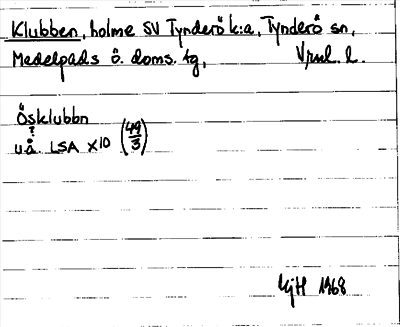 Klubben, holme SV Tynderö k:a, Tynderö sn,
Medelpads ö. doms. tg, Vrnl. l.
Ösklubbn
?
u.å. LSA X10 (49/3)
1968